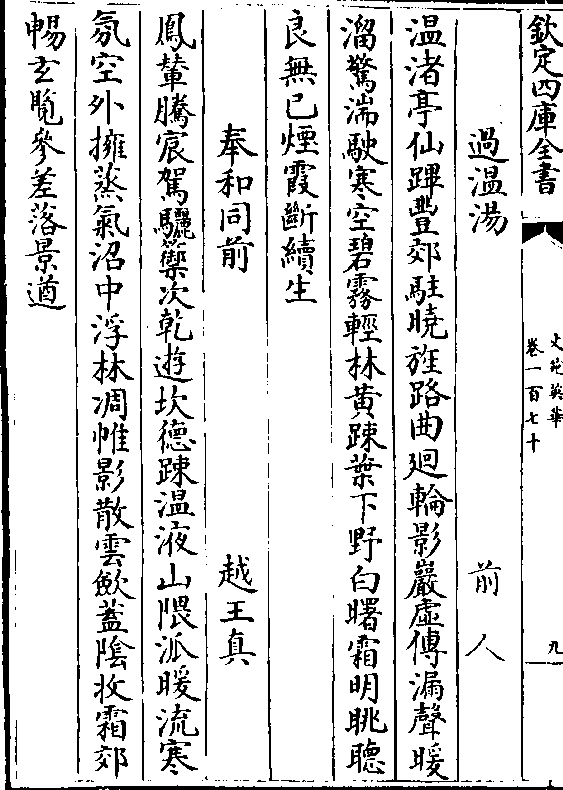 欽定四庫全書
文苑英華
卷一百七十
九
過温湯　前人
温渚亭仙蹕豐郊駐曉旌路曲廻輪影巖虚傳漏聲暖
溜驚湍駛寒空碧霧輕林黄踈葉下野白曙霜明眺聽
良無已煙霞斷續生
奉和同前　越王真
鳳輦騰宸駕驪籞次乾遊坎德踈温液山隈派暖流寒
氛空外擁蒸氣沼中浮林凋帷影散雲歛蓋陰收霜郊
暢玄覧參差落景遒